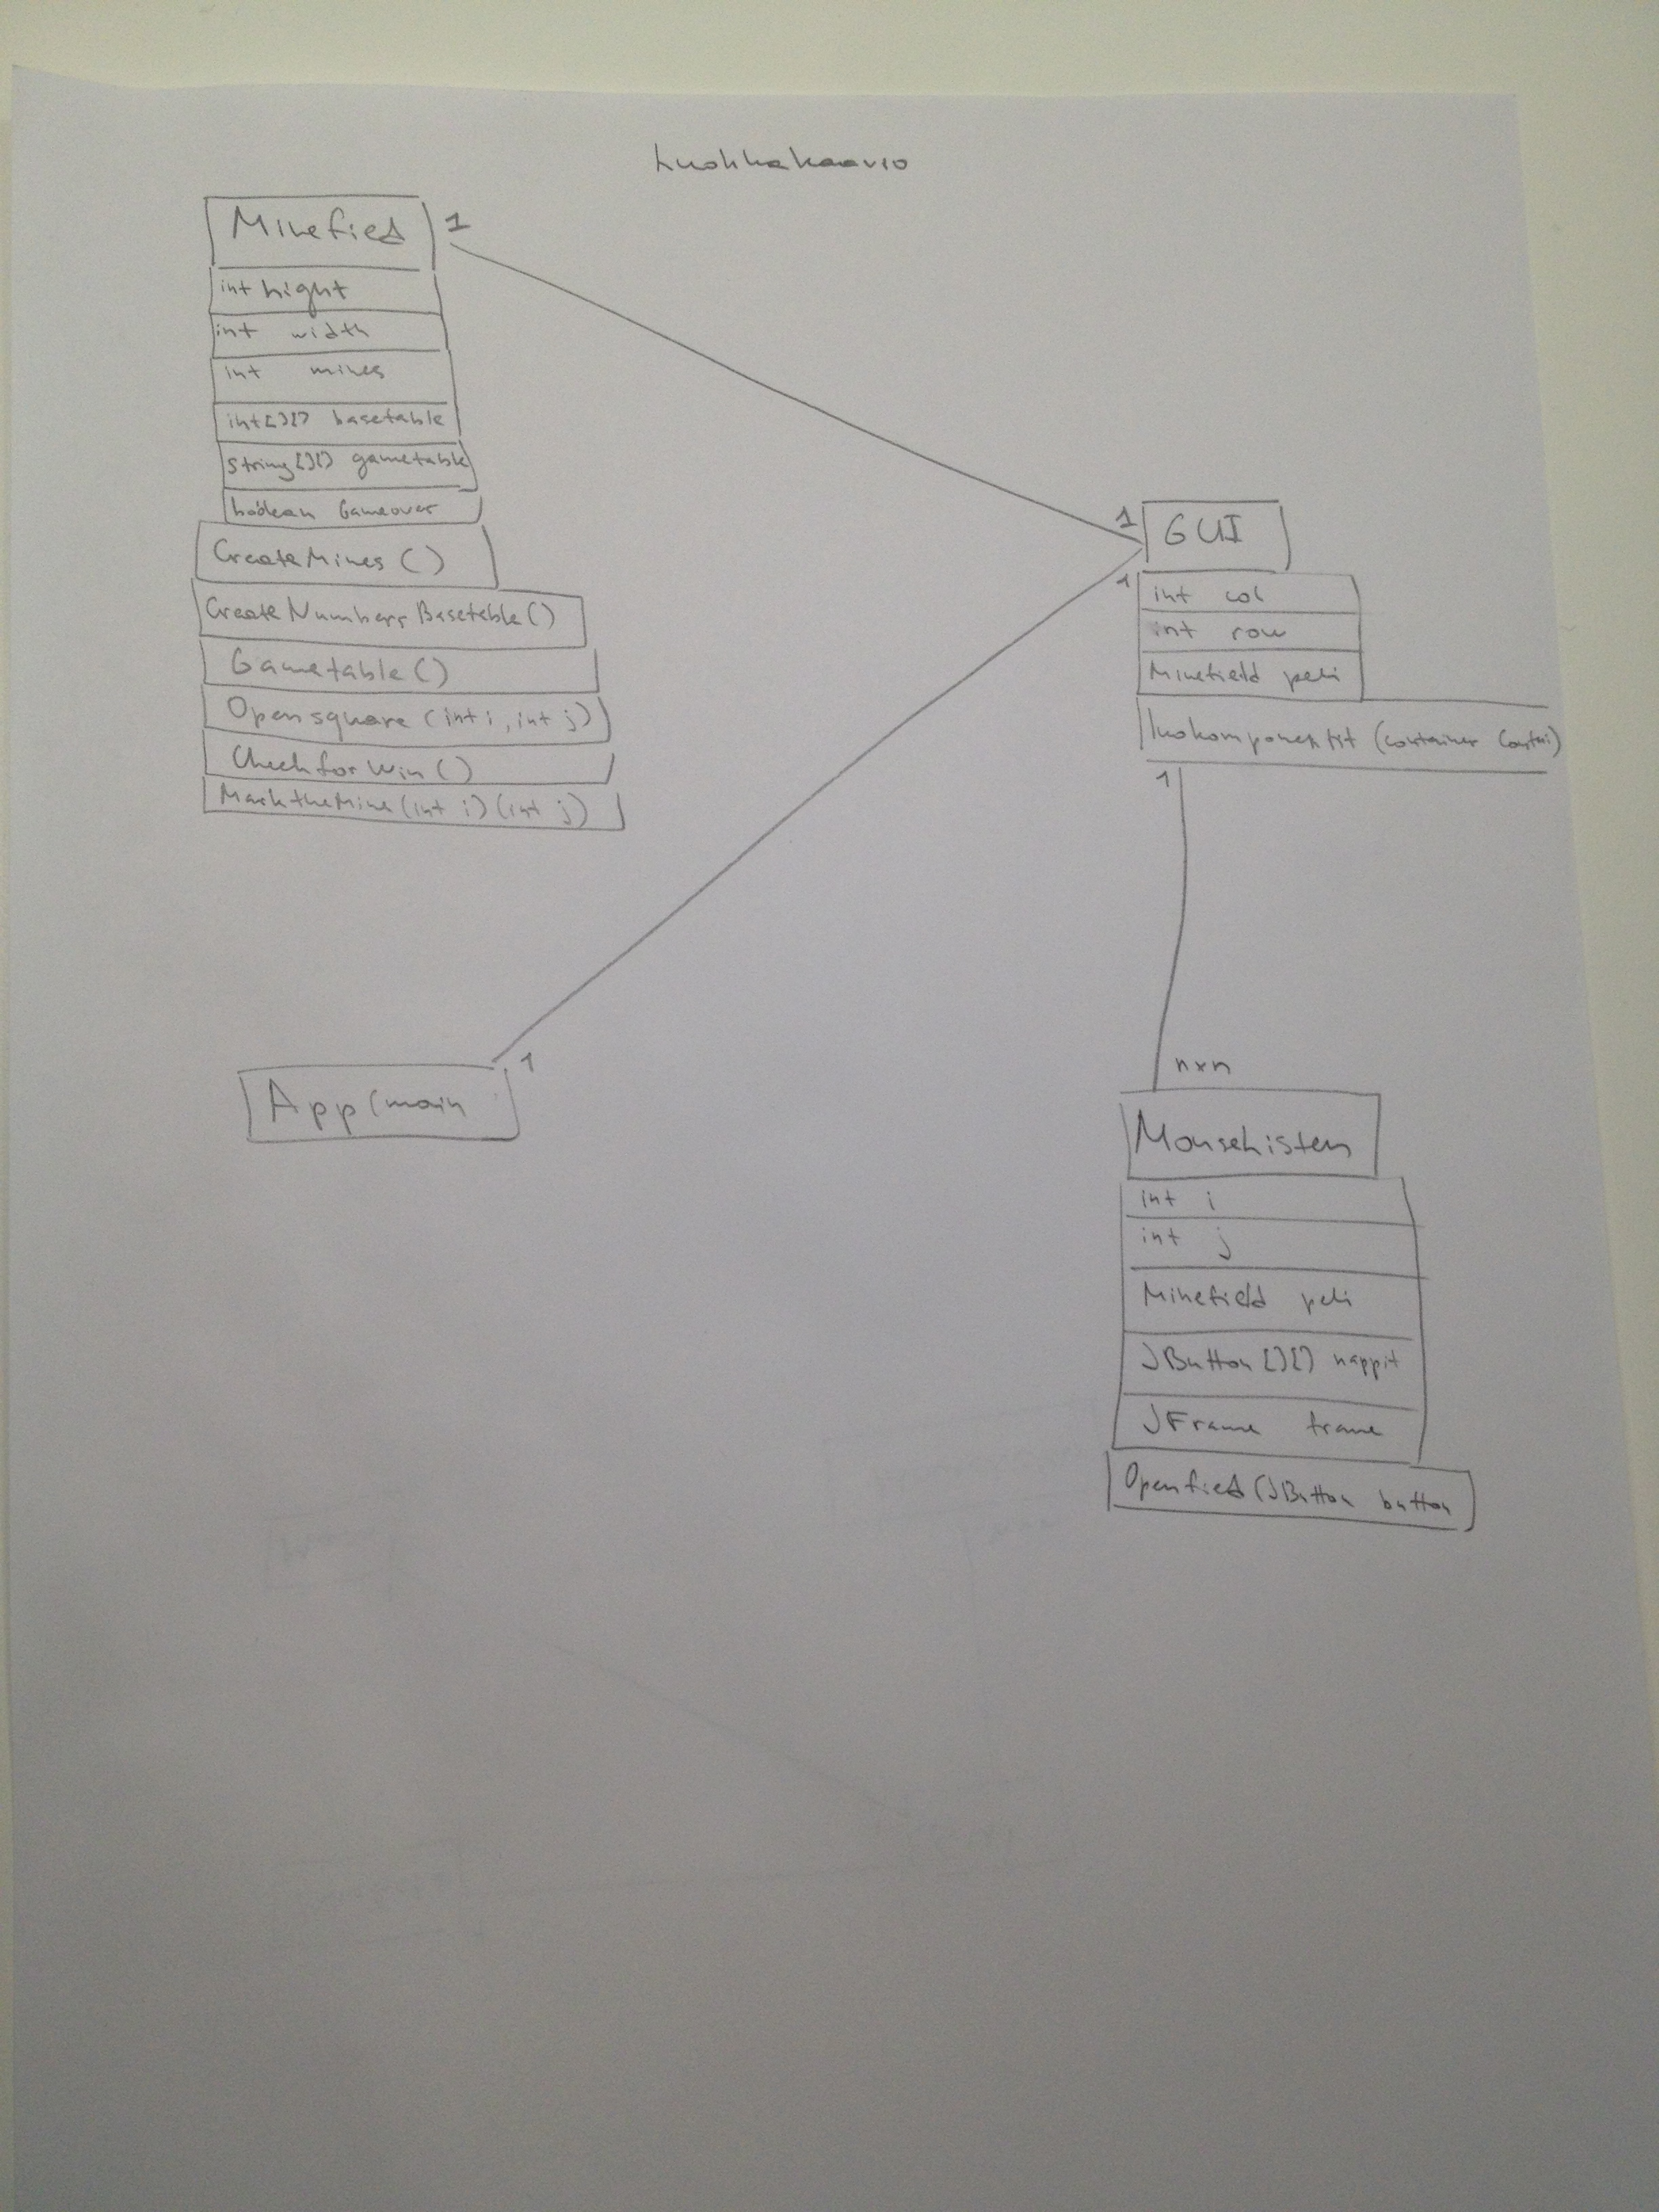 Luokkakaavio
Minefied
1
int hight
int width
int mines
int[][] basetable
String[][] gametable
boolean Gameover
CreateMines ()
CreateNumbersBasetable()
Gametable()
Opensquare (int i, int j)
CheckforWin ()
MarktheMine(int i)(int j)
1
GUI
1
int col
int row
Minefield peli
luokomponentit (container
1
App(main
1
nxn
MouseListen
int i
int j
Minefield peli
JButton[][] nappit
JFrame frame
Openfied(JButton button